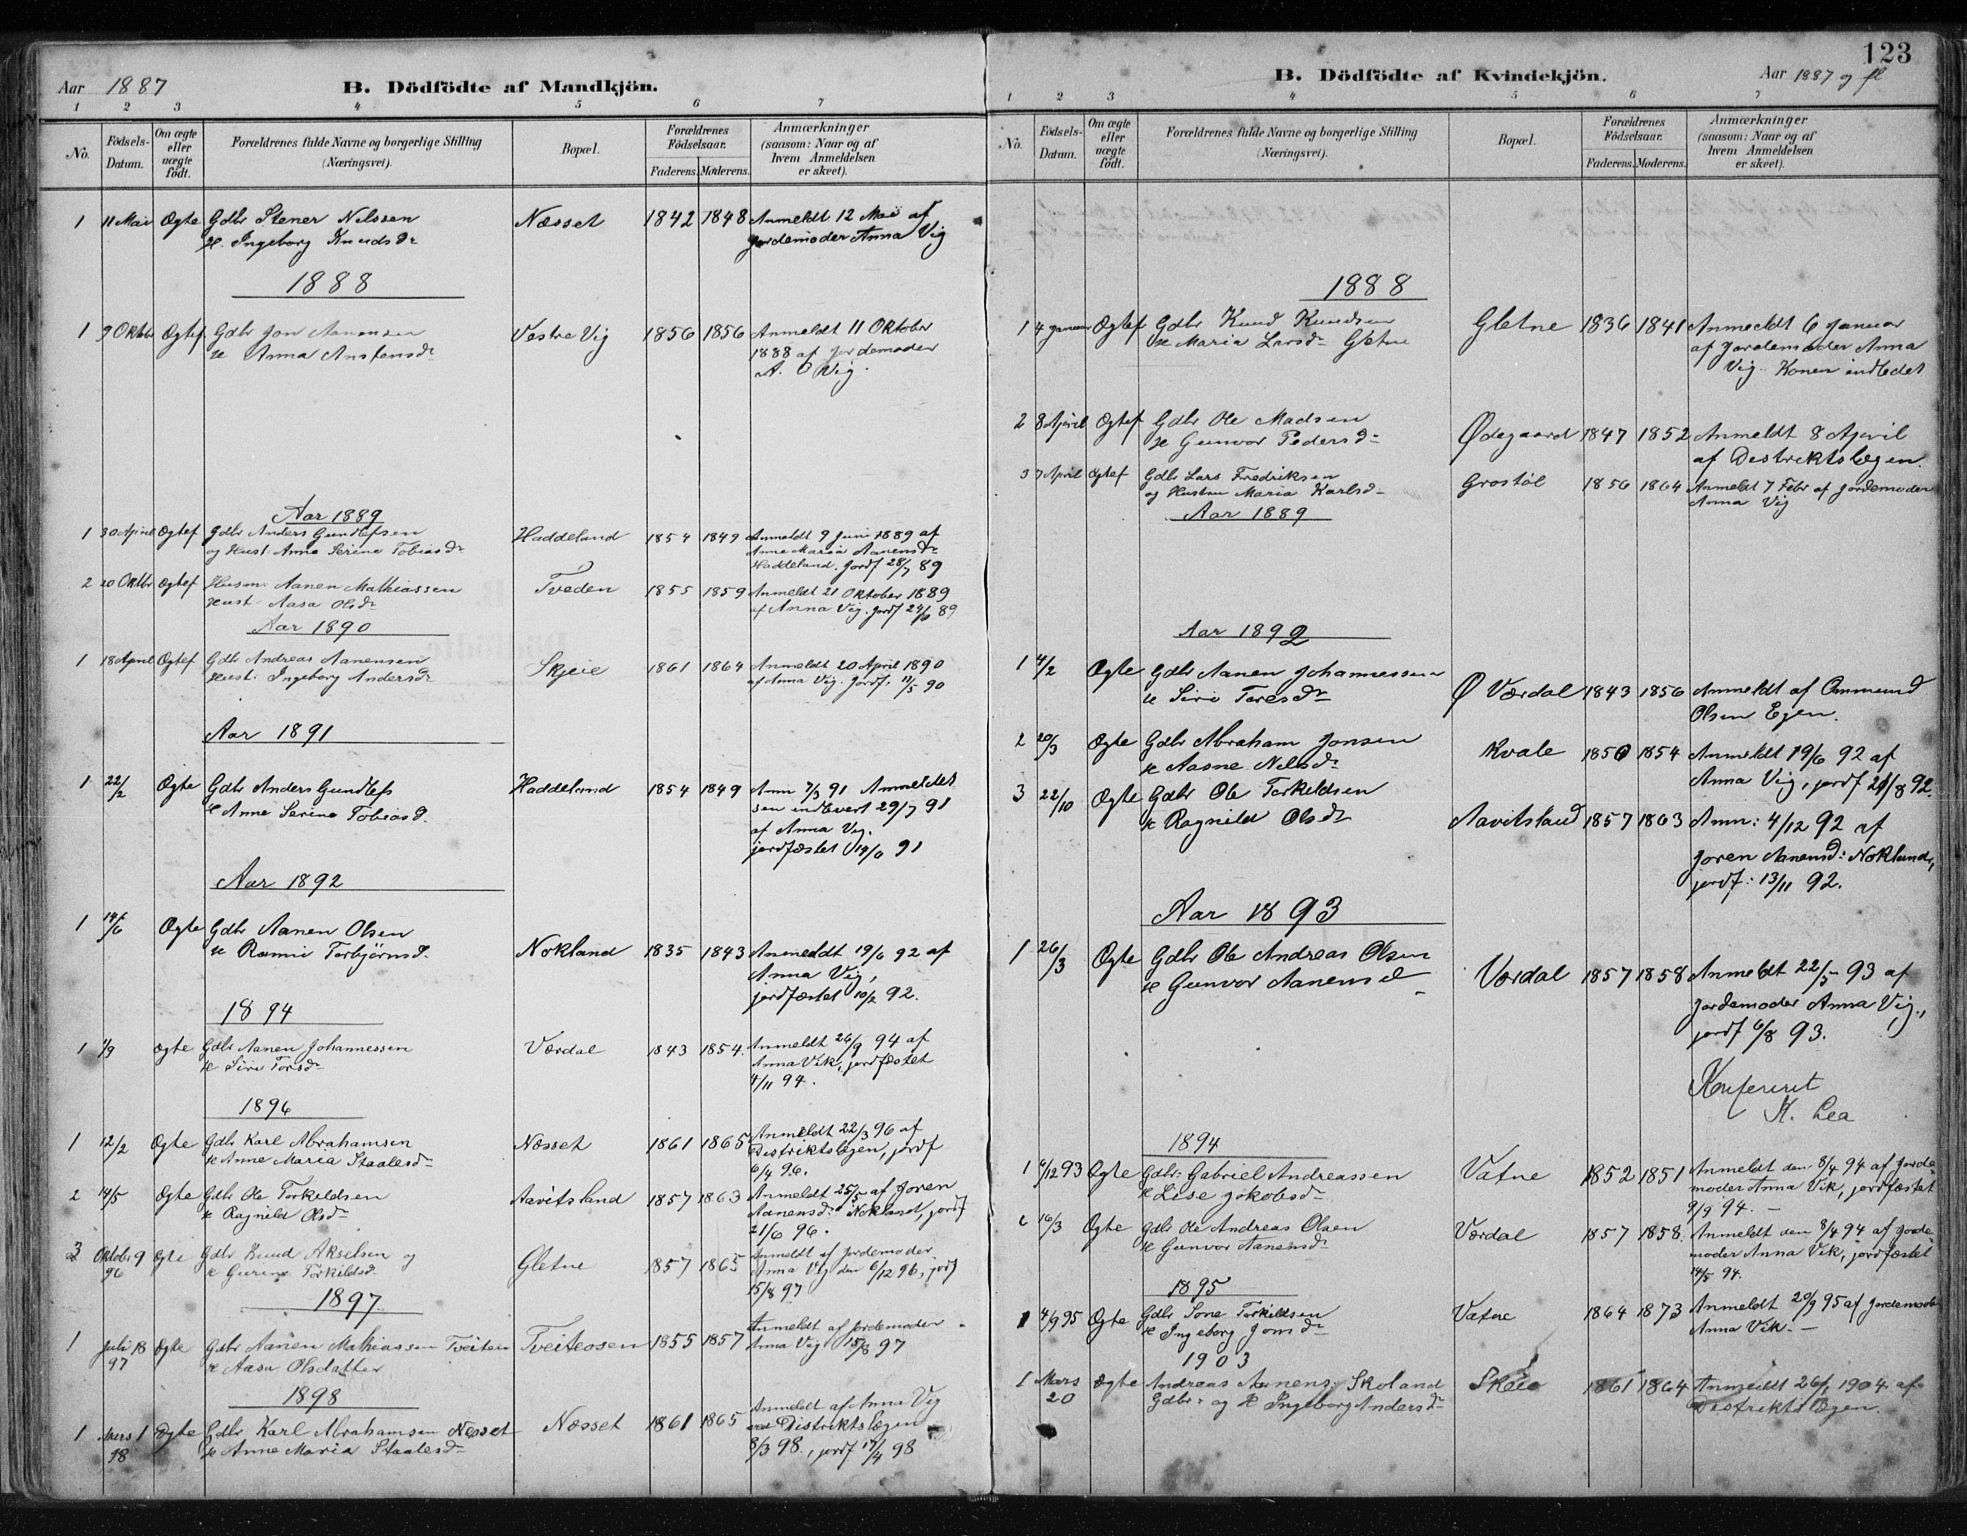 Aar 1887
B. Dödfödte af Mandkjön.
1 2 3 4 5 6 7
No.
Födsels-Datum.
Om ægte eller uægte födt.
Forældrenes fulde Navne og borgerlige Stilling (Næringsvei).
Bopæl.
Forældrenes Födselsaar.
Faderens. Moderens.
Anmærkninger (saasom: Naar og af hvem Anmeldelsen er skeet).
1 11 Mai Ægte Gdbr Stener Nilssen Næsset 1842 1848 Anmeldt 12 Mai af
H. Ingeborg Knudsdr Jordemoder Anna Vig
1888
1 9 Oktbr Ægtef. Gdbr Jon Aanensen Vestre Vig 1856 1856 Anmeldt 11 Oktober
H Anna Anstensdr 1888 af Jordemoder
A. O Vig.
Aar 1889
1 30 April Ægtef Gdbr Anders Gundlefsen Haddeland 1854 1849 Anmeldt 9 Juni 1889 af
og Hust. Anne Serine Tobiasdr Anne Maria Aanensdr
Haddeland. Jordf 28/7 89
2 20 Oktbr Ægtef Husm: Aanen Mathiassen Tveden 1855 1859 Anmeldt 21 Oktober 1889
Hust. Aasa Olsdr af Anna Vig. Jordf 24/ 89
Aar 1890
1 18 April Ægtef Gdbr Andreas Aanensen Skjeie 1861 1864 Anmeldt 20 April 1890
Hust: Ingeborg Andersdr af Anna Vig. Jordf. 11/5 90
Aar 1891
1 22/2 Ægte Gdbr Anders Gundlefs Haddeland 1854 1849 Anm 7/3 91 Anmeldel
H Anne Serine Tobiasd. sen indlevert 29/7 91
af Anna Vig.
jordfæstet 19/ 91
Aar 1892
1 14/6 Ægte Gdbr Aanen Olsen Nokland 1835 1843 Anmeldt 19/6 92 af
H Torbjørnsd. Anna Vig,
jordfæstet 10/ 92.
1894
1 1/9 Ægte Gdbr Aanen Johannessen Værdal 1843 1854. Anmeldt 26/9 94 af
H Siri Torsdr Anna Vik, jordfæstet
4/11 94.
1896
1 12/2 Ægte Gdbr Karl Abrahamsen Næsset 1861 1865 Anmeldt 22/3 96 af
H Anne Maria Staalesdr Distriktslægen, jordf
6/4 96.
2 14/5 Ægte Gdbr Ole Torkildsen Aavitsland 1857 1863 Anmeldt 25/5 af Joren
H Ragnild Olsdr Aanensd: Nokland, jordf
21/6 96.
3 Oktobr 9 Ægte Gdbr Knud Akselsen og Gletne 1857 1865 Anmeldt af Jordemoder
96 H Gurine Torkildsd. Anna Vig den 6/12 96, jorf
15/8 97
1897.
1 Juli 18 Ægte Gdbr Aanen Mathiassen Tveiten Tveiteosen 1855 1857 Anmeldt af Jordemoder
97 H Aasa Olsdatter Anna Vig 15/8 97
1898
1 Mars 1 Ægte Gdbr Karl Abrahamsen Nesset Næsset 1861 1865 Anmeldt af Anna Vig
98 H Anne Maria Staalesdr ved Distriktslægen
8/3 98., jordf 17/4 98
123
B. Dödfödte af Kvindekjön.
Aar 1887 og fl
1 2 3 4 5 6 7
No.
Födsels-Datum.
Om ægte eller uægte födt.
Forældrenes fulde Navne og borgerlige Stilling (Næringsvei).
Bopæl.
Forældrenes Födselsaar.
Faderens. Moderens.
Anmærkninger (saasom: Naar og af hvem Anmeldelsen er skeet).
1888
1 4 Januar Ægtef Gdbr Knud Knudsen Gletne 1836 1841 Anmeldt 6 Januar
H Maria Larsdr Gletne af Jordemoder Anna
Vig. Konen indledet
2 8 April Ægtef Gdbr Ole Madsen Ødegaard 1847 1852 Anmeldt 8 April
H Gunvor Pedersdr af Distriktslægen.
3 7 April Ægtef Gdbr Lars Fredriksen Grostøl 1856 1864 Anmeldt 7 Febr af Jordemoder
og Hustru Maria Karlsdr Anna Vig
Aar 1889
Aar 1892
1 4/2 Ægte Gdbr Aanen Johannessen Ø Værdal 1843 1856 Anmeldt af Ommund
H Siri Toresdr Olsen Egen.
2 20/3 Ægte Gdbr Abraham Jonsen Kvale 1850 1854 Anmeldt 19/6 92 af
H Aasne Nilsdr Anna Vig, jordf 21/8 92.
3 22/10 Ægte Gdbr Ole Torkildsen Aavitsland 1857 1863 Anm: 4/12 92 af
H Ragnild Olsdr Joren Aanensd: Nokland,
jordf: 13/11 92.
Aar 1893
1 26/3 Ægte Gdbr Ole Andreas Olsen Værdal 1857 1858 Anmeldt 22/5 93 af
H Gunvor Aanensd Jordemoder Anna Vig.,
jordf 6/8 93.
Konfereret
H. Lea
1894
1 6/12 93 Ægte Gdbr: Gabriel Andreassen Vatne 1852 1851 Anmeldt den 8/4 94 af Jorde
H Lise Jakobsdr moder Anna Vik, jordfæstet
9/9 94. —
16/3 Ægte Gdbr Ole Andreas Olsen Værdal 1857 1858. Anmeldt den 8/4 94 af Jorde
H Gunvor Aanensdr moder Anna Vik, jordfæstet
14/5 94.
1895
1 4/9 95 Ægte Gdbr Sone Torkildsen Vatne 1864 1873 Anmeldt 20/9 95 af Jordemoder
H Ingeborg Jonsdr Anna Vik. —
1903
1 Mars Ægte Andreas Aanens. Skoland Skeie 1861 1864 Anmeldt 26/ 1904 af
20 Gdbr. og H Ingeborg Andersdr Distriktslægen.